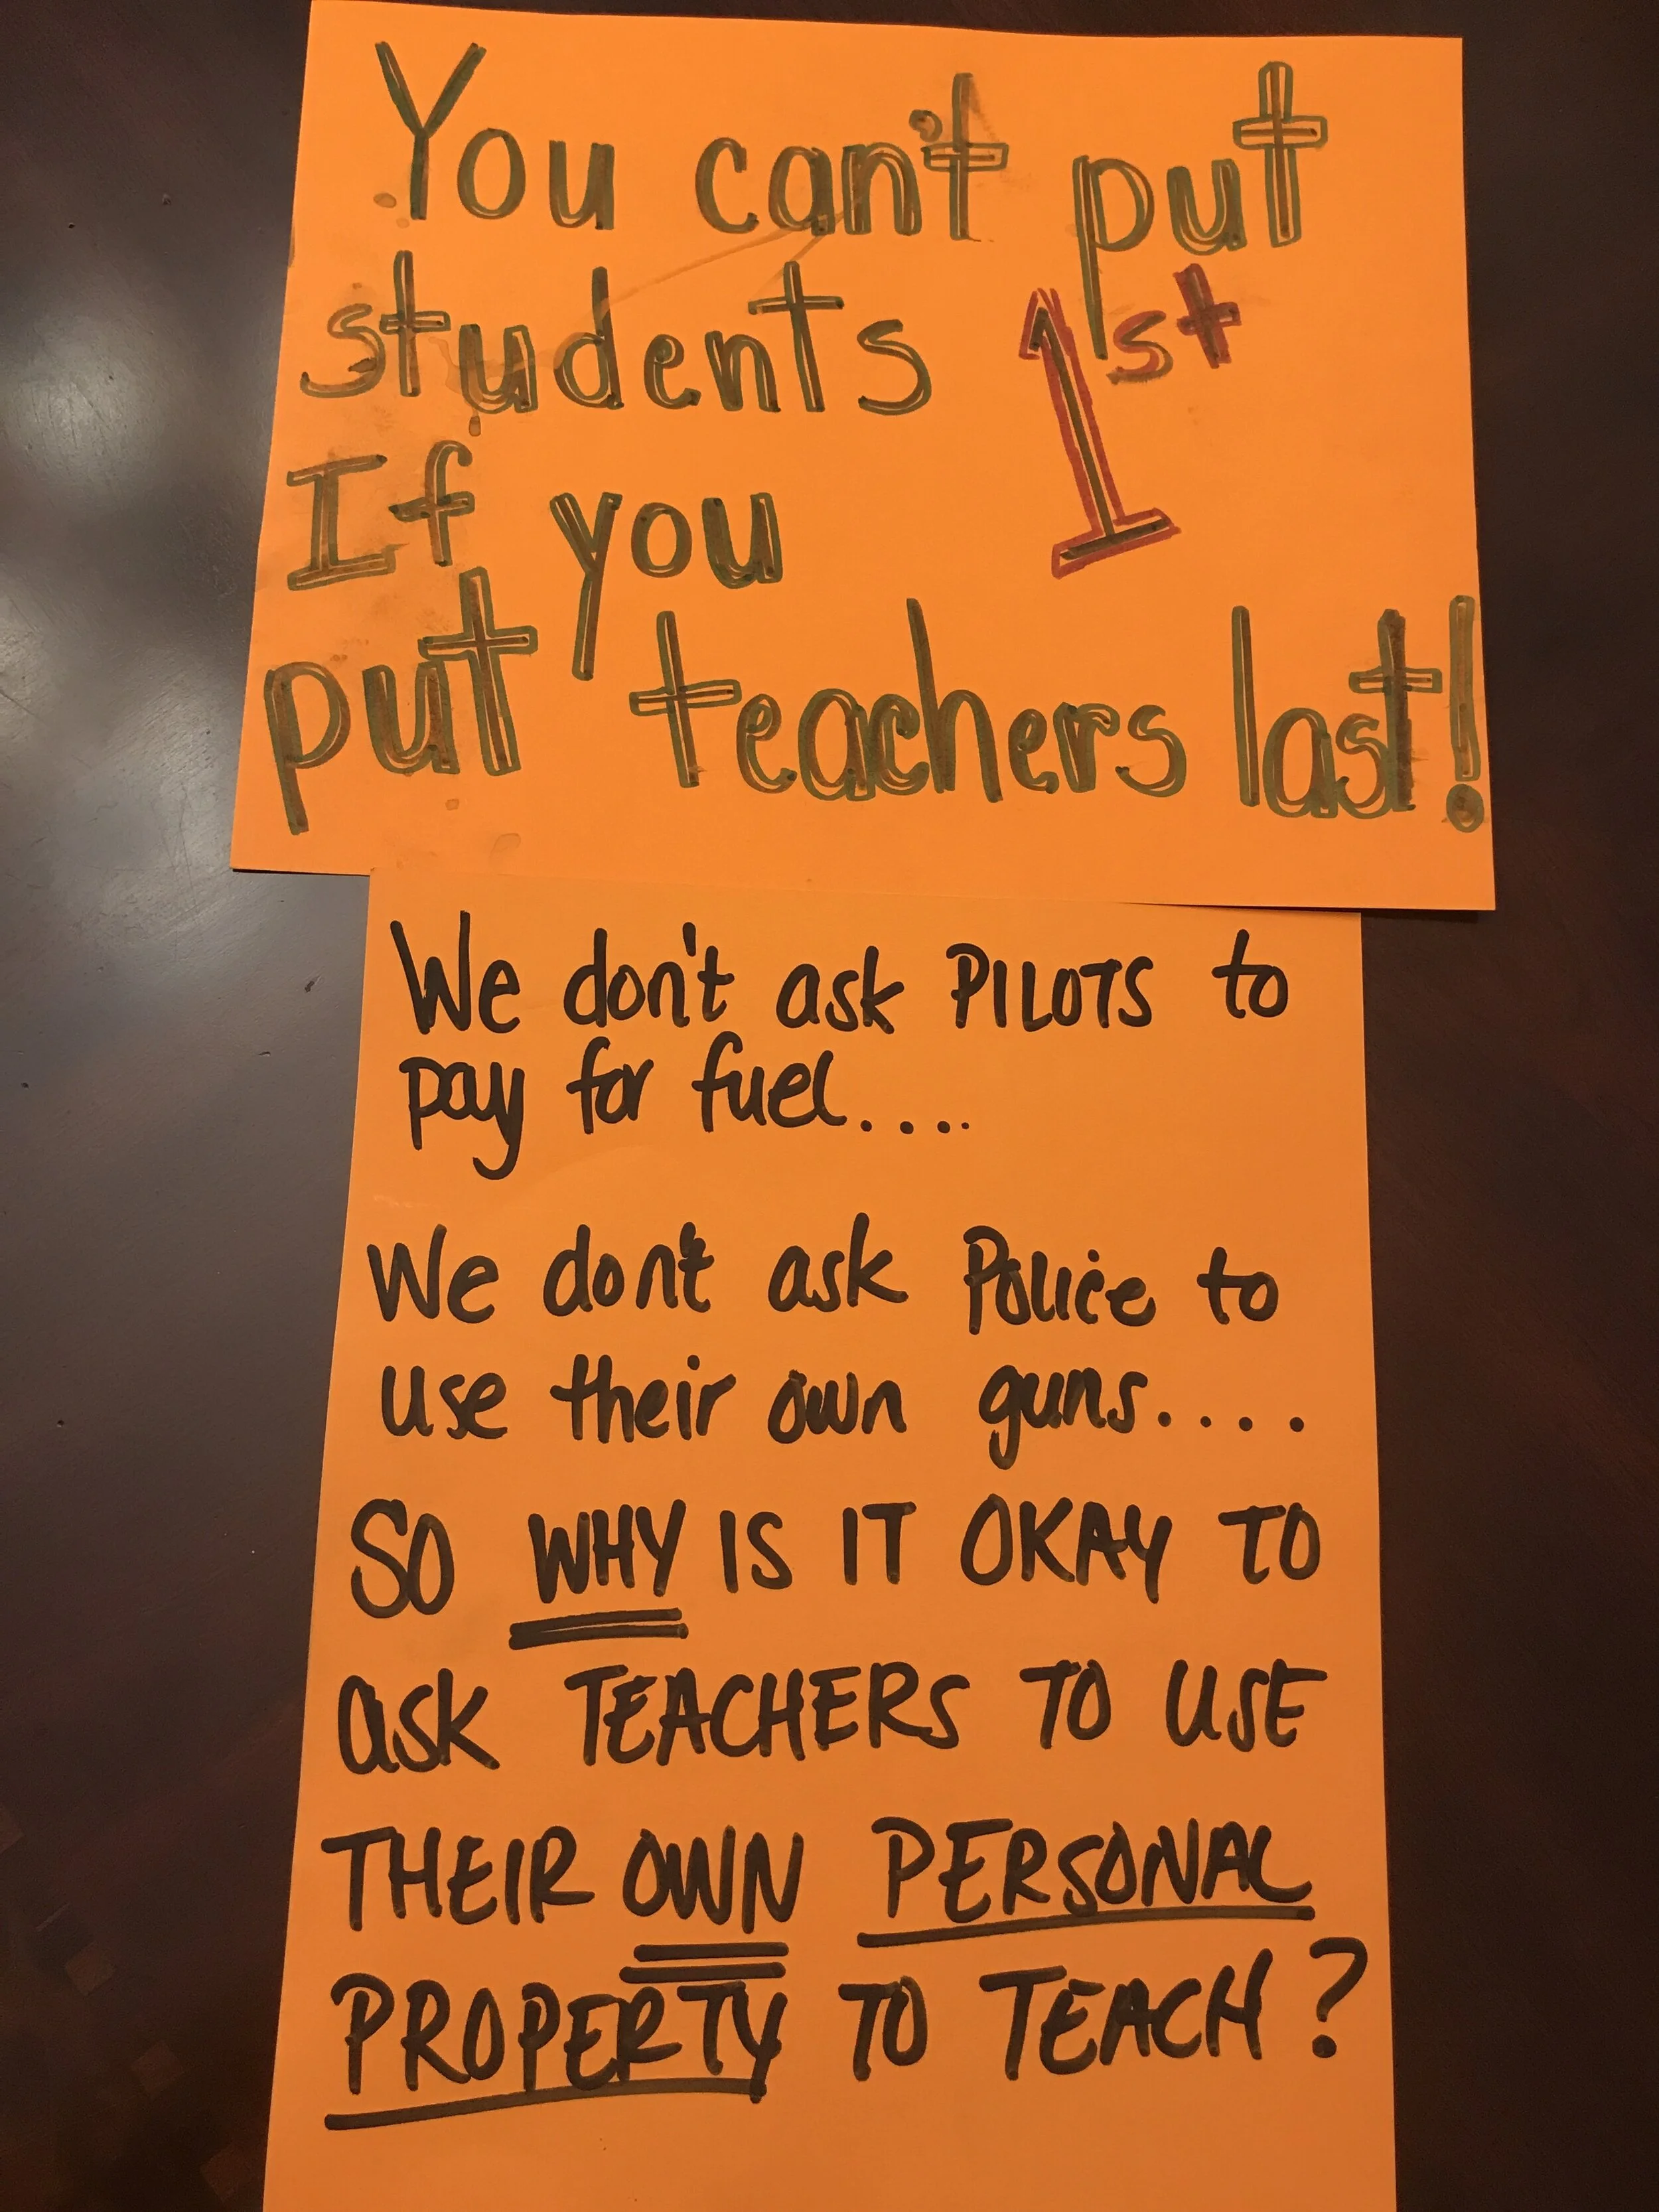 You can't put
students 1st
If you
put teachers last!
We don't ask PILOTS to
pay for fuel....
We don't ask Police to
use their own guns....
SO WHY IS IT OKAY TO
ask TEACHERS TO USE
THEIR OWN PERSONAL
PROPERTY TO TEACH?